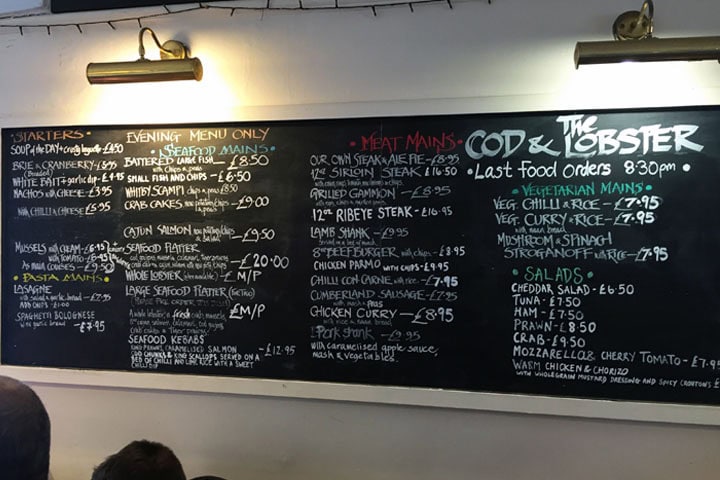 STARTERS
SOUP of the DAY + crusty baguette £4.50
BRIE & CRANBERRY - £5.95
(Breaded)
WHITE BAIT + garlic dip - £5.95
NACHOS with CHEESE - £3.95
with CHILLI & CHEESE £5.95
MUSSELS with CREAM - £6.95
with TOMATO - £6.95
AS MAIN COURSE - £9.50
PASTA MAINS
LASAGNE
with salad & garlic bread - £7.95
ADD CHIPS £1.00
SPAGHETTI BOLOGNESE
with garlic bread - £7.95
EVENING MENU ONLY
SEAFOOD MAINS
BATTERED LARGE FISH - £8.50
with Chips & peas
SMALL FISH AND CHIPS - £6.50
WHITBY SCAMPI chips & peas 8.50
CRAB CAKES new potatoes, chips & salad - £9.00
CAJUN SALMON new potatoes, chips & salad - £9.50
SEAFOOD PLATTER
- £20.00
WHOLE LOBSTER (when available) - £M/P
LARGE SEAFOOD PLATTER (for two)
(PLEASE PRE ORDER THIS DISH)
£M/P
A whole lobster, a fresh crab, mussels,
SEAFOOD KEBABS
KING PRAWNS, CARAMELISED SALMON - £12.95
COD CHUNKS & KING SCALLOPS SERVED ON A
BED OF CHILLI AND LIME RICE WITH A SWEET
CHILLI DIP
MEAT MAINS
OUR OWN STEAK & ALE PIE - £8.95
12oz SIRLOIN STEAK £16.50
GRILLED GAMMON - £8.95
12oz RIBEYE STEAK - £16.95
LAMB SHANK - £9.95
Served on a bed of mash
8oz BEEFBURGER with chips - £8.95
CHICKEN PARMO WITH CHIPS - £9.95
CHILLI CON-CARNE with rice - £7.95
CUMBERLAND SAUSAGE - £7.95
with mash + peas
CHICKEN CURRY - £8.95
with rice & naan bread
Pork shank - £9.95
with caramelised apple sauce,
mash & vegetables.
THE
COD & LOBSTER
• Last Food Orders 8:30pm •
• VEGETARIAN MAINS •
VEG. CHILLI & RICE - £7.95
VEG. CURRY & RICE - £7.95
with naan bread
MUSHROOM & SPINACH
STROGANOFF with RICE - £7.95
• SALADS •
CHEDDAR SALAD - £6.50
TUNA - £7.50
HAM - £7.50
PRAWN - £8.50
CRAB - £9.50
MOZZARELLA & CHERRY TOMATO - £7.95
WARM CHICKEN & CHORIZO
WITH WHOLEGRAIN MUSTARD DRESSING AND SPICY CROUTONS